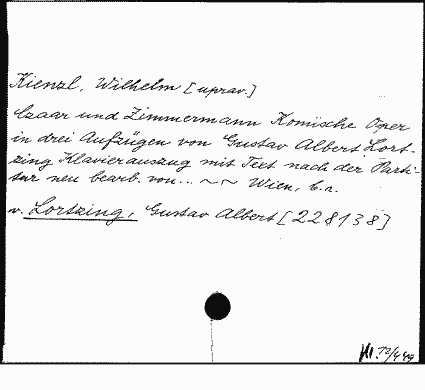 Kienzl, Wilhelm [uprav.]
Czaar und Zimmermann Komische Oper
in drei Aufzügen von Gustav Albert Lort-
zing Klavierauszug mit Text nach der Parti-
tur neu bearb. von... ~ ~ Wien, b.a.
v. Lortzing, Gustav Albert [228138]